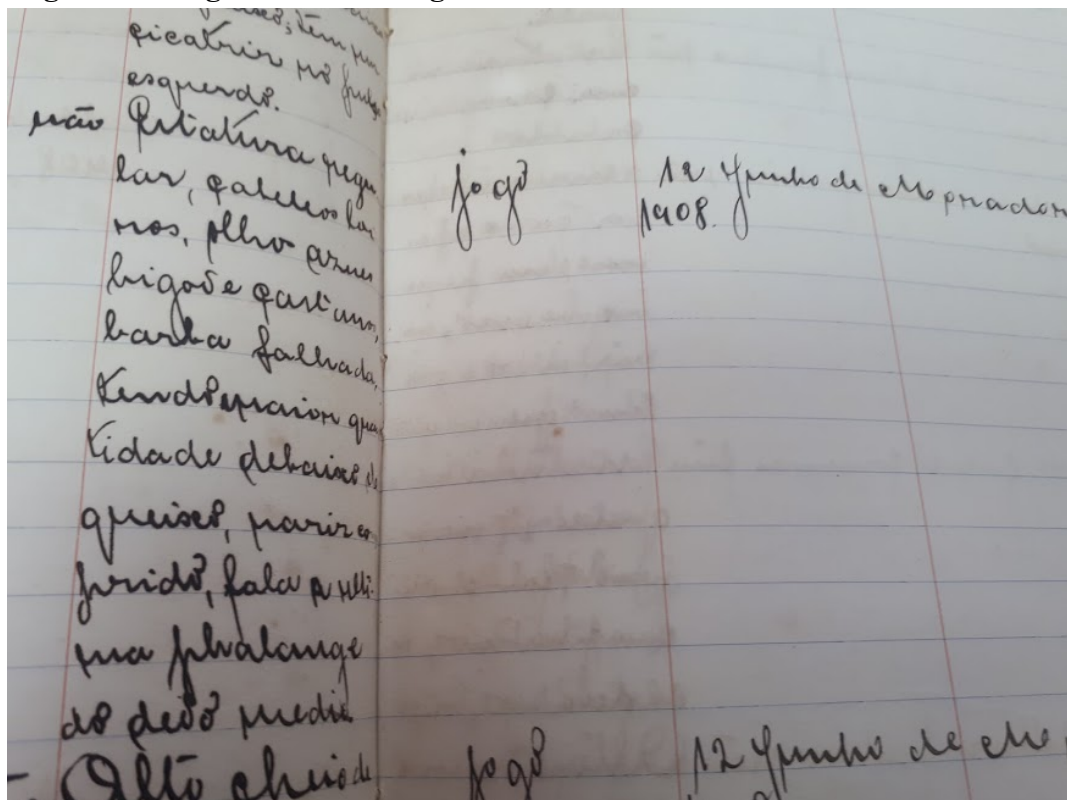 queixo, tem um
cicatriz no
esquerdo.
não Estatura regu
lar, cabellos lou
ros, olho azues
bigode castanno,
barba falhada,
tendo maior quan
tidade debaixo do
queixo, nariz com
prido, fala a ulti-
ma phalange
do dedo medio
Alto cheio de
jogo
12 Junho de
1908.
Morador
jogo
12 Junho de